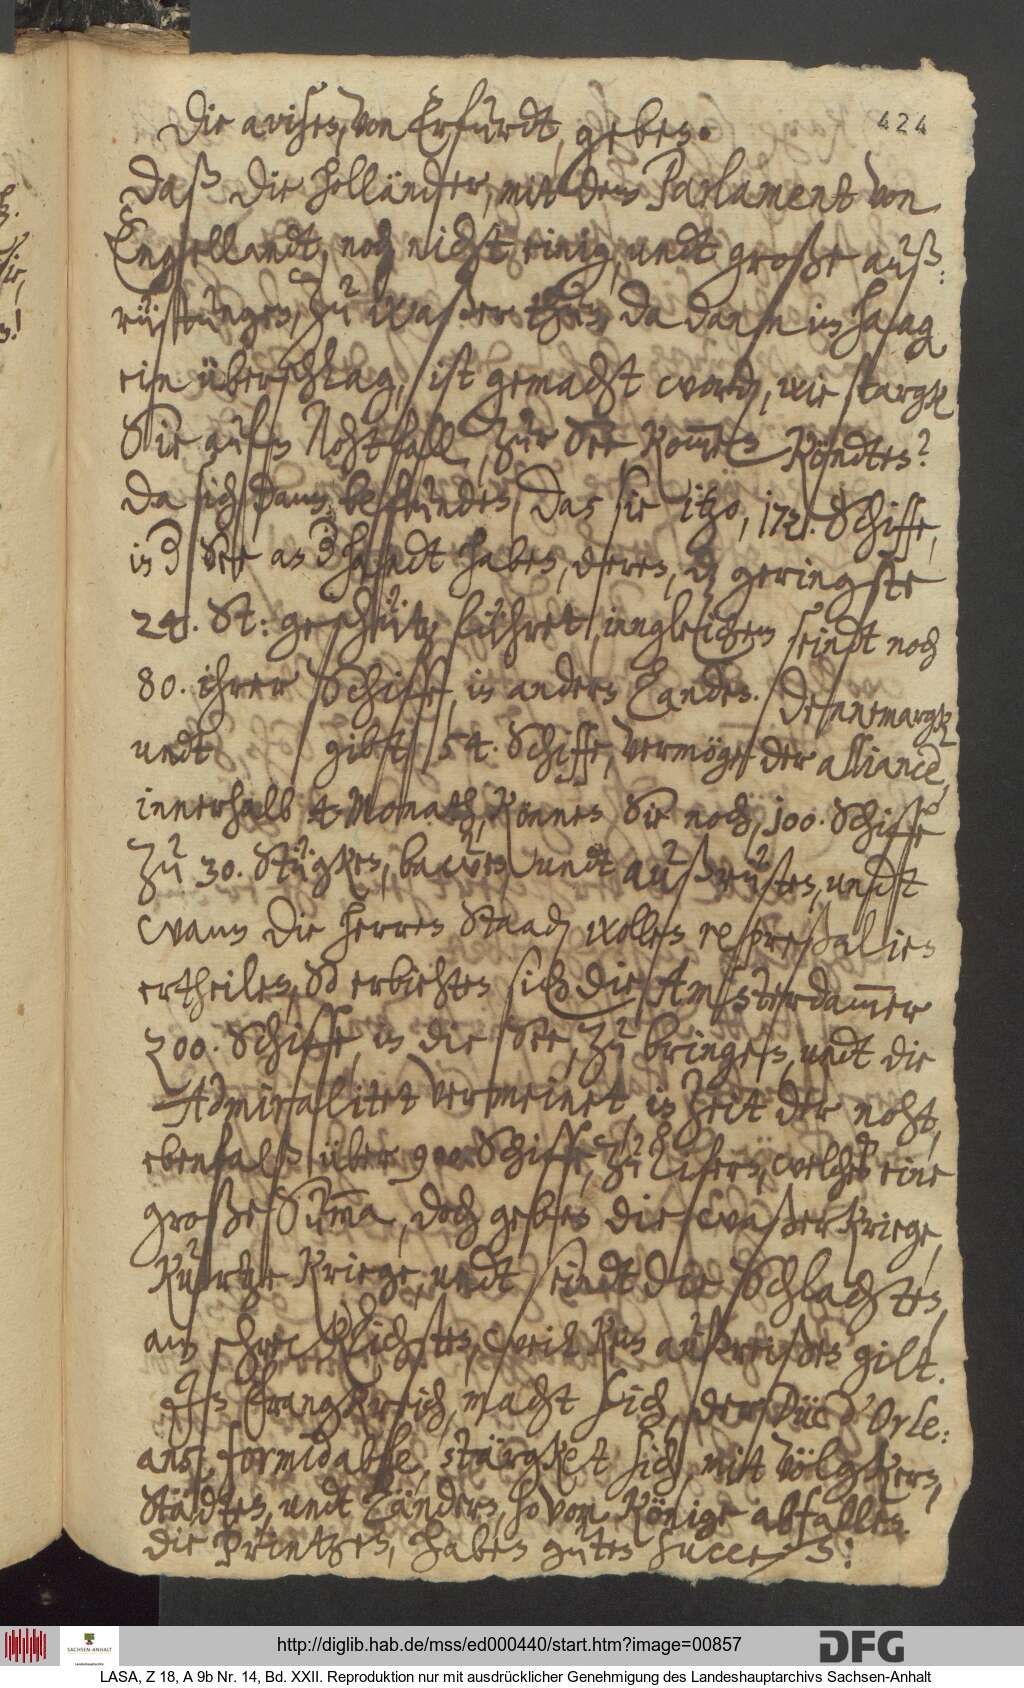 424
Die avisen, von Erfurdt, geben.
Daß die Holländer, mit dem Parlament von
Engellandt, noch nicht einig, undt große auß:
rüstungen, zu waßer thun, da dann im Haag
ein überschlag, ist gemacht word, wie stargk
Sie aufm Nohtfall, zur See kommen köndten?
Da sichs dann befunden, das sie itzo, 172. Schiffe,
in d See an d handt haben, deren, d geringste
24. St: geschütz führet, inngleichem seindt noch
80. ihrer Schiffe, in andern Landen. Dennemargk
undt gibst 54. Schiffe, vermöge der alliance,
innerhalb 4 Monath, können Sie noch, 100. Schiffe
zu 30. Stügken, bawen undt außrüsten, undt
wann die herren Staad wollen repreßalien
ertheilen, So erbiehten sich die Amsterdammer
200. Schiffe, in die See, zu bringen, undt die
Admiralitet vermeinet, in Zeit der noht,
ebenfalß über 900. Schiffe, zu lifern, welches eine
große Summa, doch geben die waßerkriege,
kurtze Kriege, undt seindt die Schlachten,
am schrecklichsten, weil kein außreißen gilt.
In Frangkreich, macht sich, der Düc d'Orle:
ans, formidable, stärgket sich, mit völgkern,
Städten, undt Ländern, so vom Könige abfallen.
die Printzen, haben guten Success:
http://diglib.hab.de/mss/ed000440/start.htm?image=00857
SACHSEN-ANHALT
DFG
LASA, Z 18, A 9b Nr. 14, Bd. XXII. Reproduktion nur mit ausdrücklicher Genehmigung des Landeshauptarchivs Sachsen-Anhalt